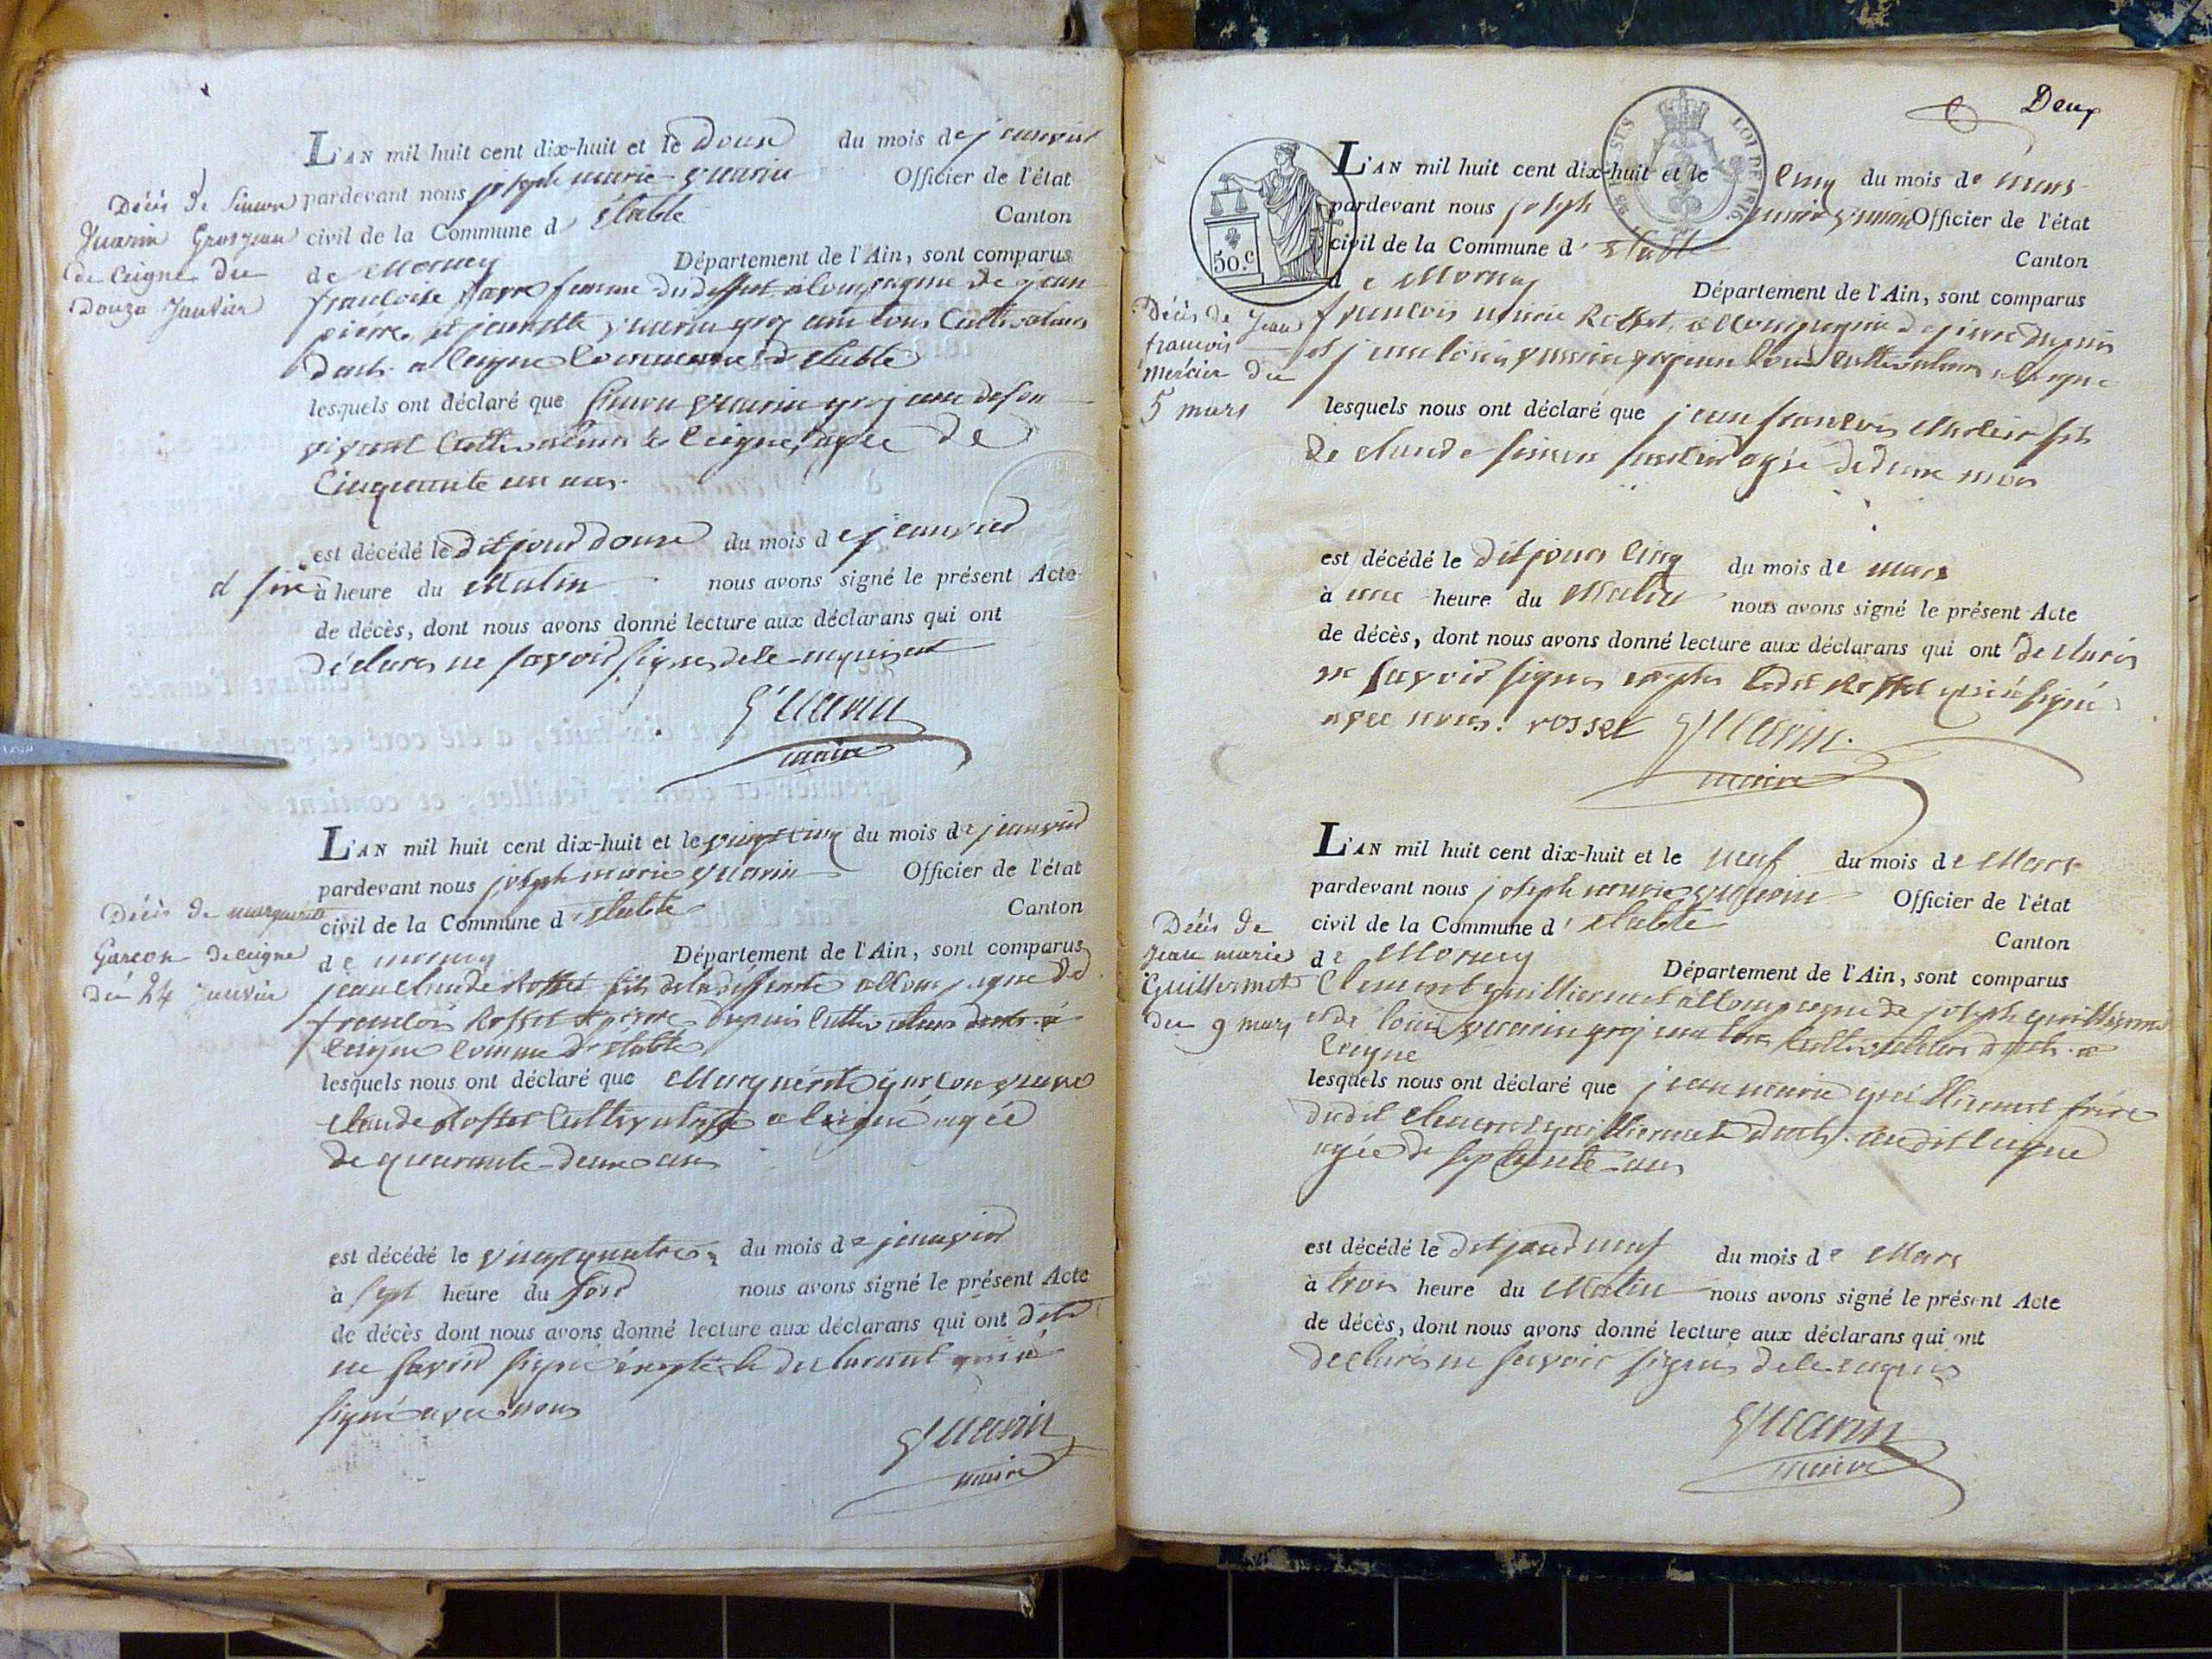 L'AN mil huit cent dix-huit et le douze du mois de janvier
pardevant nous joseph marie guarin Officier de l'état
civil de la Commune d'étable Canton
de Mornay Département de l'Ain, sont comparus
francoise favre femme du deffunt a Compagne de jean
pierre et jeanette guarin gros jean tous Cultivateurs
a Ceigne Commune d'étable
lesquels ont déclaré que Simon guarin grosjean de son
vivant Cultivateur de Ceigne, agée de
Cinquante un ans.
est décédé le dit jour douze du mois de janvier
à heure du Matin nous avons signé le présent Acte
de décès, dont nous avons donné lecture aux déclarans qui ont
déclarés ne savoir signer de ce enquis
Guarin
maire
Décès de Simon
Guarin Grosjean
de Ceigne du
Douze Janvier
L'AN mil huit cent dix-huit et le vingt cinq du mois de janvier
pardevant nous joseph marie guarin Officier de l'état
civil de la Commune d'étable Canton
de mornay Département de l'Ain, sont comparus
jean Claude Rosset fils de la deffunte a Compagne de
francois Rosset et pierre dupuis Cultivateurs a
Ceigne Commune d'étable
lesquels nous ont déclaré que Marguerite garcon veuve
Claude Rosset Cultivatrice a Ceigne agée
de quarante-deux ans
est décédé le vingt quatre du mois de janvier
à sept heure du soir nous avons signé le présent Acte
de décès dont nous avons donné lecture aux déclarans qui ont
ne savoir signé excepté le declarant qui a
signé avec nous
Guarin
maire
Décès de marguerite
Garcon de Ceigne
du 24 janvier
Deux
50.C
LOI DE 1816
L'AN mil huit cent dix-huit et le Cinq du mois de mars
pardevant nous joseph marie guarin Officier de l'état
civil de la Commune d'étable Canton
de Mornay Département de l'Ain, sont comparus
francois marie Rosset, a Compagnie de pierre dupuis
et jean louis guarin grosjean tous Cultivateurs a Ceigne
lesquels nous ont déclaré que jean francois Mercier fils
de Claude Simon mercier agée de deux mois
est décédé le dit jour Cinq du mois de mars
à une heure du Matin nous avons signé le présent Acte
de décès, dont nous avons donné lecture aux déclarans qui ont déclarés
ne savoir signer excepter ledit Rosset qui a signé
avec nous. rosset Guarin.
maire
Décès de Jean
francois
mercier du
5 mars
L'AN mil huit cent dix-huit et le neuf du mois de Mars
pardevant nous joseph marie guarin Officier de l'état
civil de la Commune d'étable Canton
de Mornay Département de l'Ain, sont comparus
Clement guilliermet a Compagne de joseph guilliermet
et de louis guarin grosjean tous Cultivateurs a
Ceigne
lesquels nous ont déclaré que jean marie guilliermet frère
dudit Clement guilliermet audit Ceigne
agée de septante ans
est décédé le dit jour neuf du mois de Mars
à trois heure du Matin nous avons signé le présent Acte
de décès, dont nous avons donné lecture aux déclarans qui ont
declarés ne savoir signer de ce enquis
Guarin
maire
Décès de
Jean marie
Guillermet
du 9 mars